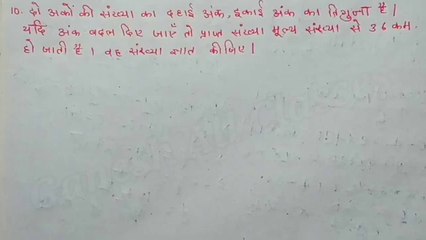 10. दो अंकों की संख्या का दहाई अंक, इकाई अंक का तिगुना है।
यदि अंक बदल दिए जाएँ तो प्राप्त संख्या मूल्य संख्या से 36 कम
हो जाती है। वह संख्या ज्ञात कीजिए।